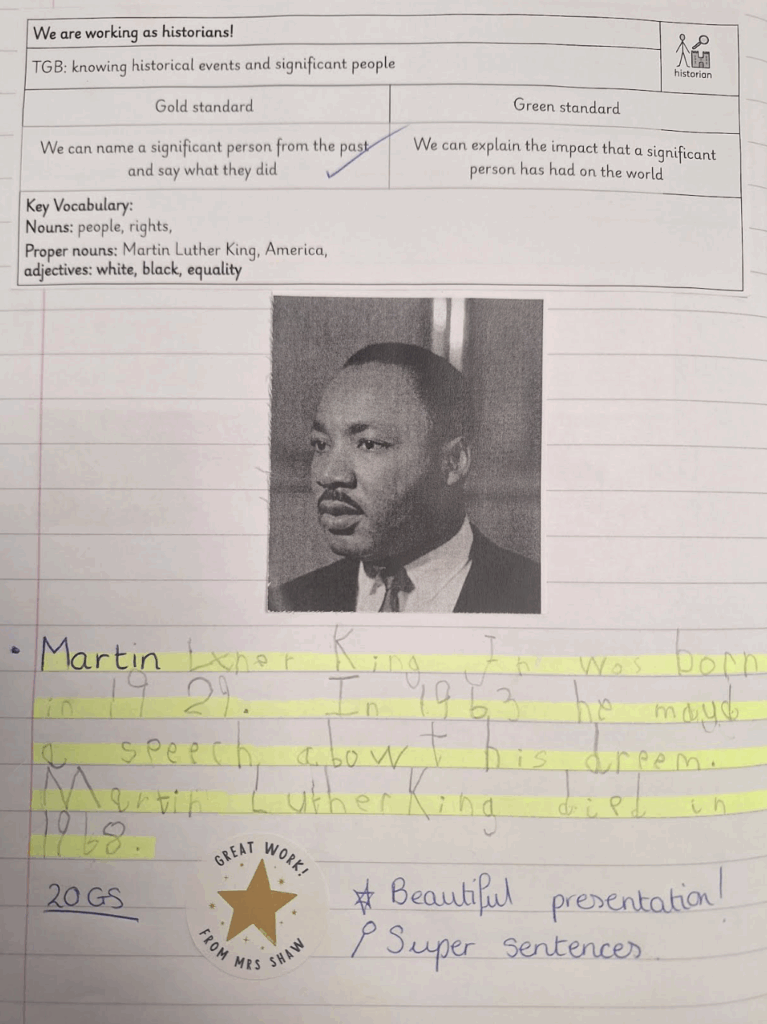 We are working as historians!
historian
TGB: knowing historical events and significant people
Gold standard
Green standard
We can name a significant person from the past
and say what they did
We can explain the impact that a significant
person has had on the world
Key Vocabulary:
Nouns: people, rights,
Proper nouns: Martin Luther King, America,
adjectives: white, black, equality
Martin King Jr was born
in 1929. In 1963 he mayd
a speech abowt his dreem.
Martin Luther King died in
1968.
20GS
GREAT WORK!
FROM MRS SHAW
Beautiful presentation!
Super sentences.